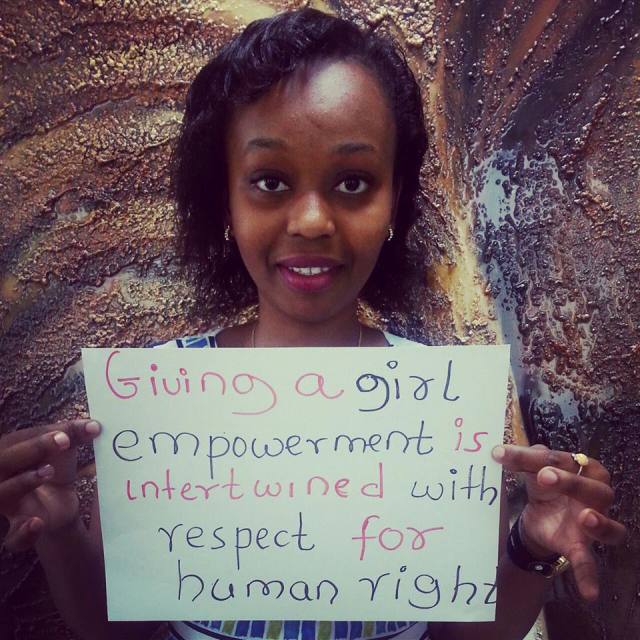 Giving a girl
empowerment is
intertwined with
respect for
human right